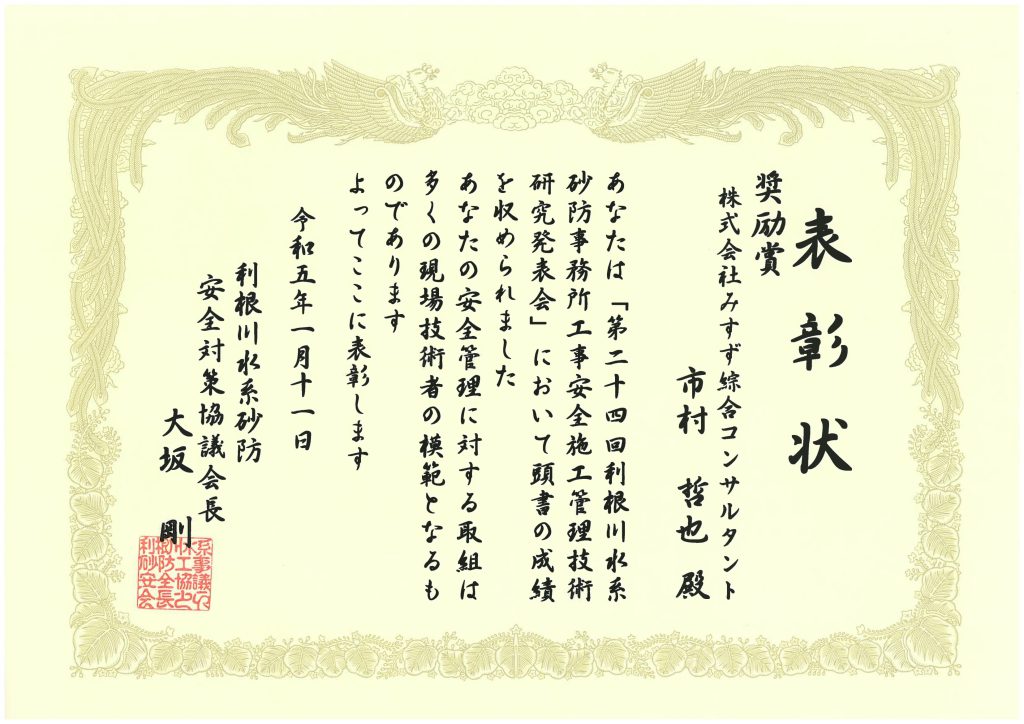 表彰状
奨励賞
株式会社みすず綜合コンサルタント
市村 哲也 殿
あなたは「第二十四回利根川水系
砂防事務所工事安全施工管理技術
研究発表会」において頭書の成績
を収められました
あなたの安全管理に対する取組は
多くの現場技術者の模範となるも
のであります
よってここに表彰します
令和五年一月十一日
利根川水系砂防
安全対策協議会長
大坂 剛